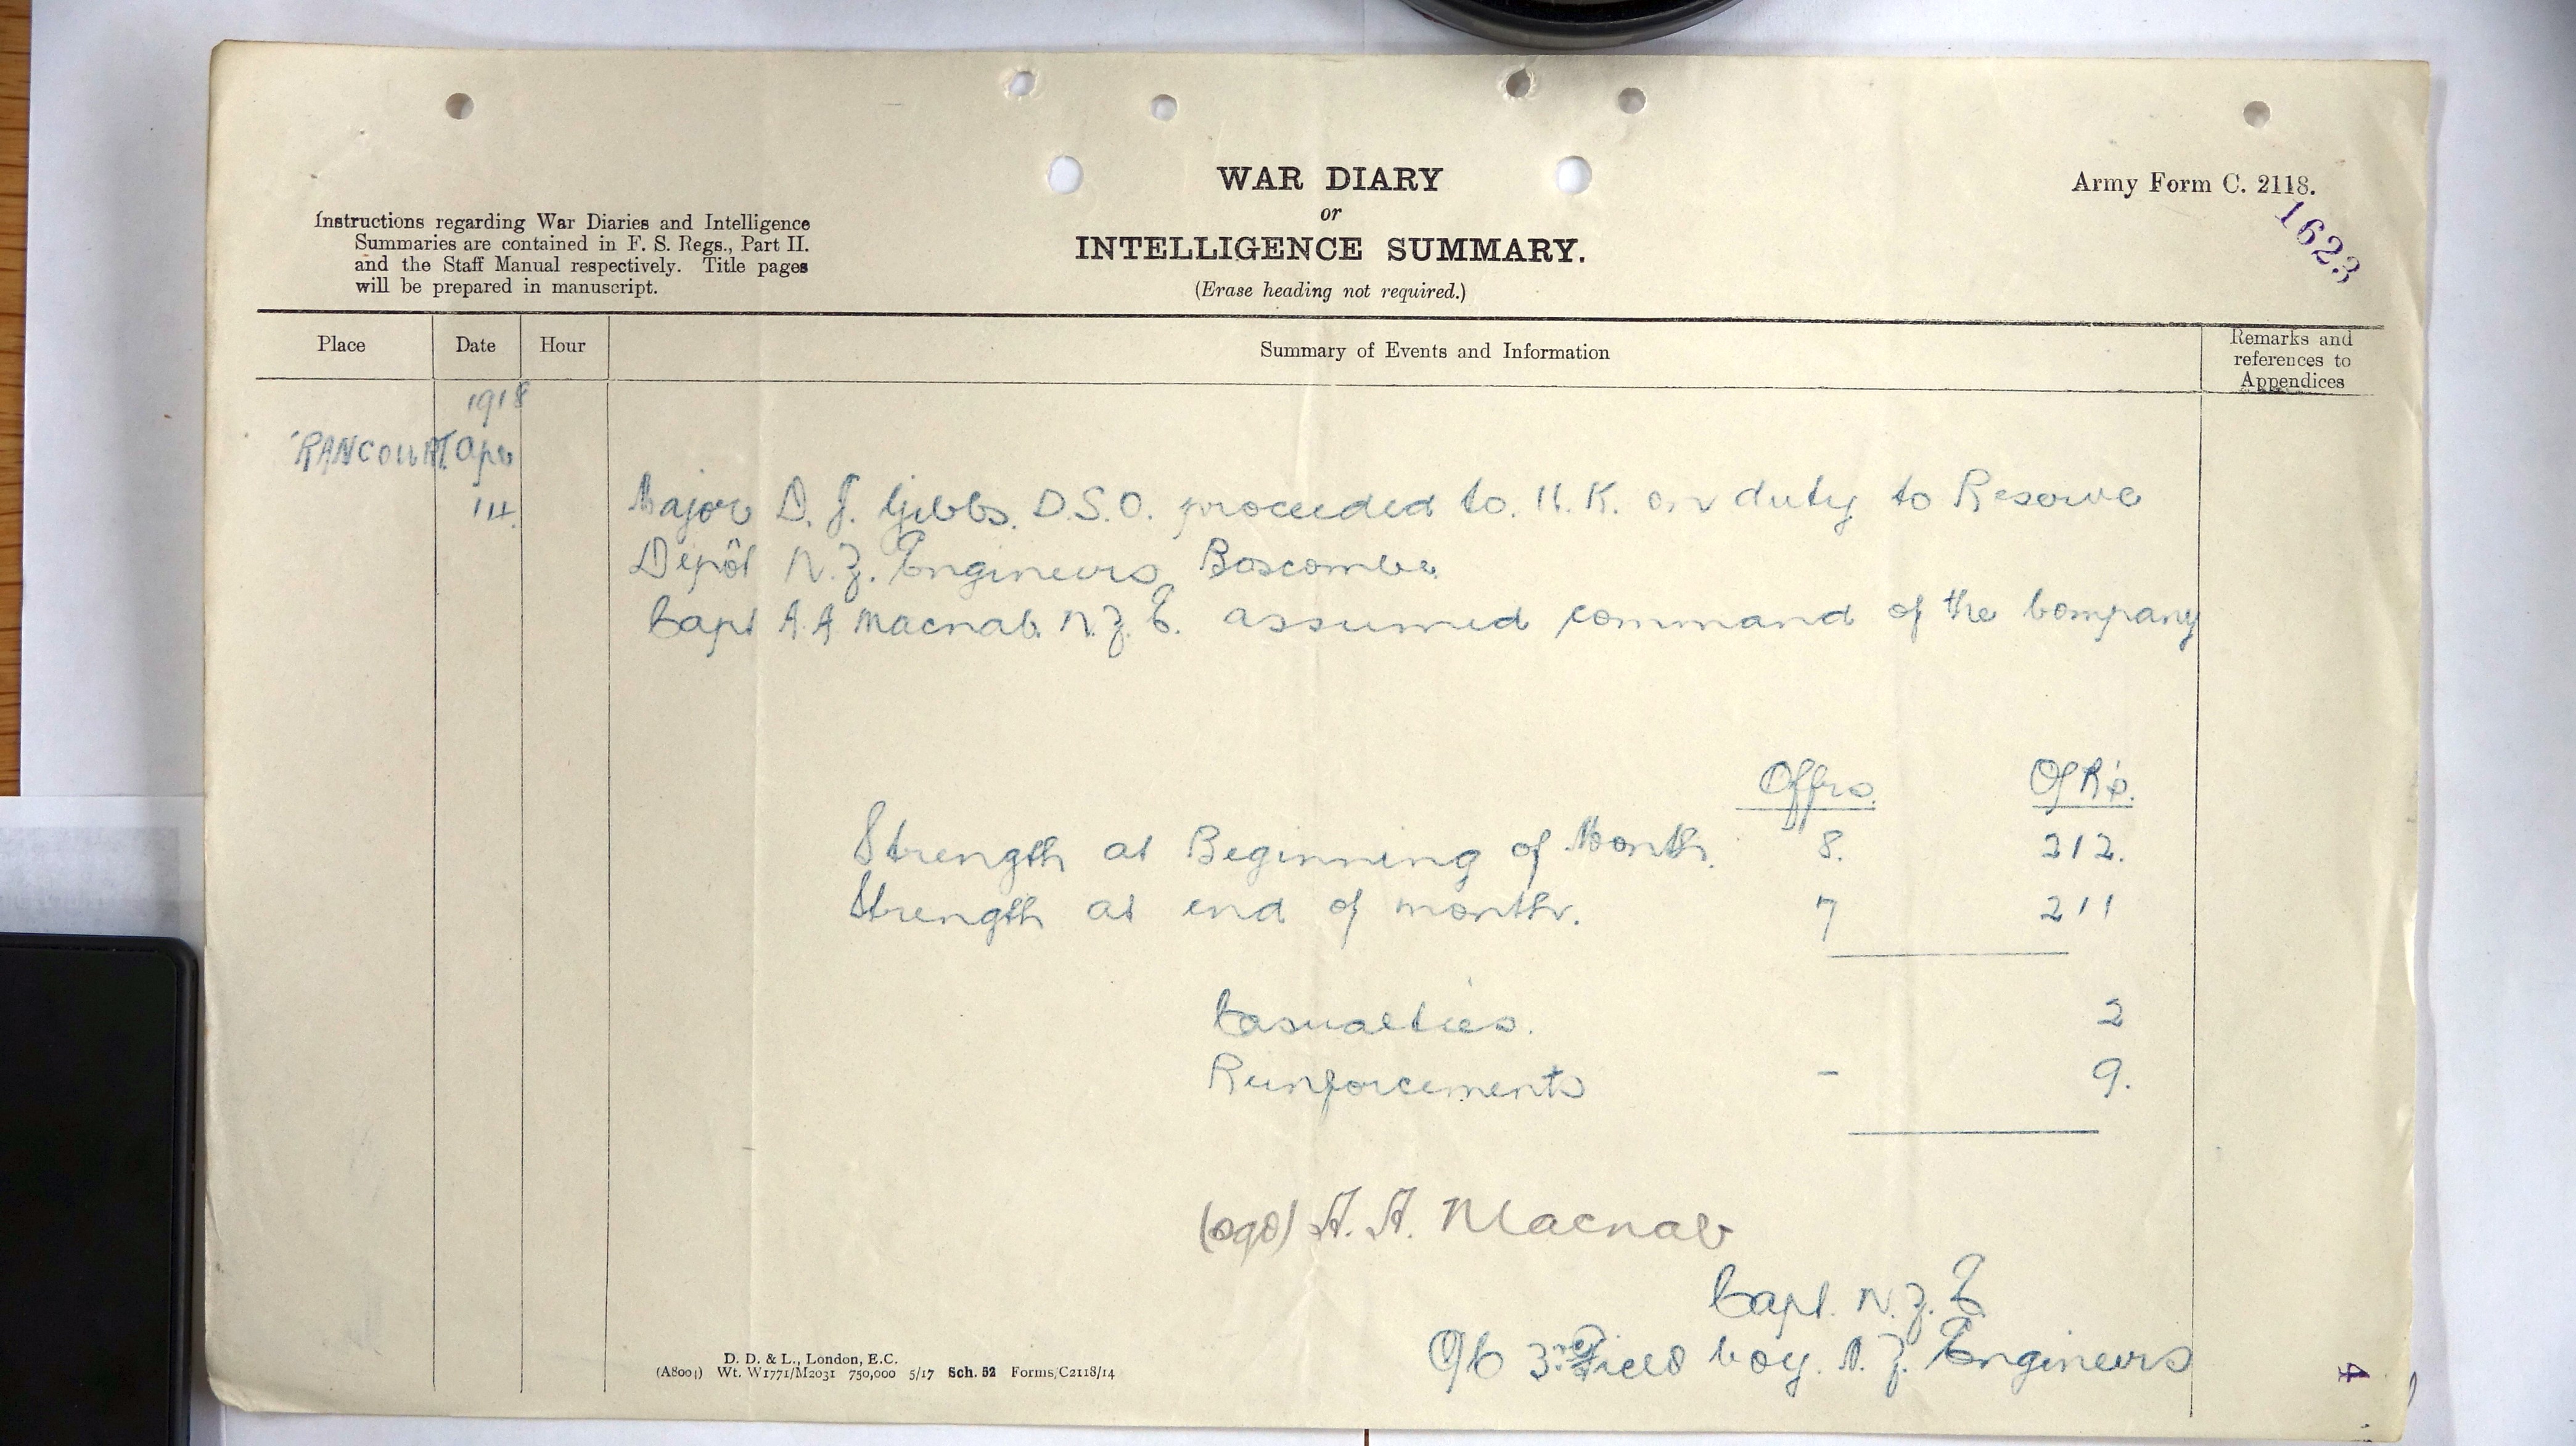 WAR DIARY
or
INTELLIGENCE SUMMARY.
(Erase heading not required.)
Army Form C. 2118.
1623
Instructions regarding War Diaries and Intelligence
Summaries are contained in F. S. Regs., Part II.
and the Staff Manual respectively. Title pages
will be prepared in manuscript.
Place Date Hour Summary of Events and Information Remarks and references to Appendices
1918
RANCOURT Apr
14. Major D. J. Gibbs. D.S.O. proceeded to. U.K. on duty to Reserve
Depôt N.Z. Engineers, Boscombe
Capt A.A Macnab. N.Z.E. assumed command of the Company
Offrs. O/R's.
Strength at Beginning of Month. 8. 212.
Strength at end of month. 7 211
Casualties. 2
Reinforcements - 9.
(sgd) A. A. Macnab
Capt. N.Z.E
O/C 3rd Field Coy. N.Z. Engineers
D. D. & L., London, E.C.
(A8001) Wt. W1771/M2031 750,000 5/17 Sch. 52 Forms/C2118/14
4